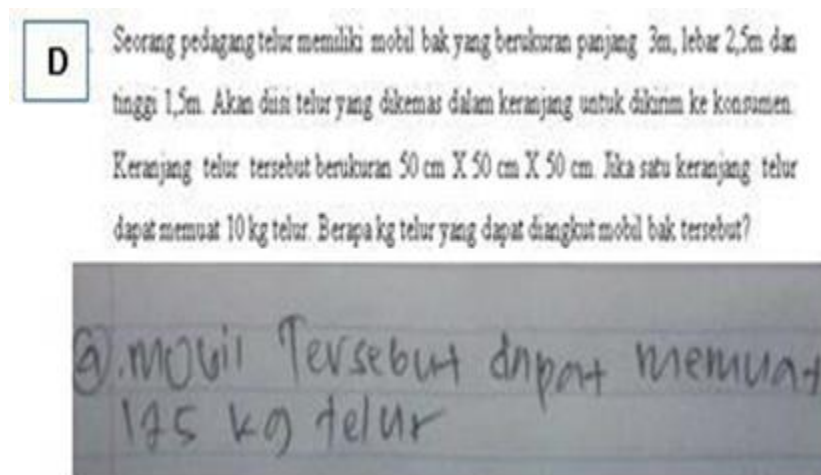 D
Seorang pedagang telur memiliki mobil bak yang berukuran panjang 3m, lebar 2,5m dan
tinggi 1,5m. Akan diisi telur yang dikemas dalam keranjang untuk dikirim ke konsumen.
Keranjang telur tersebut berukuran 50 cm X 50 cm X 50 cm. Jika satu keranjang telur
dapat memuat 10 kg telur. Berapa kg telur yang dapat diangkut mobil bak tersebut?
mobil Tersebut dapat memuat
kg telur